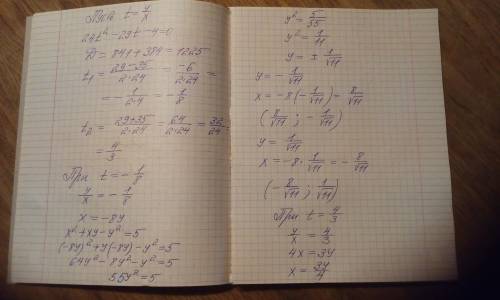 Пусть t = y/x
24t² - 29t - 4 = 0
D = 841 + 384 = 1225
t₁ = (29 - 35)/(2·24) = -6/(2·24) =
= -1/(2·4) = -1/8
t₂ = (29 + 35)/(2·24) = 64/(2·24) = 32/24 =
= 4/3
При t = -1/8
y/x = -1/8
x = -8y
x² + xy - y² = 5
(-8y)² + y(-8y) - y² = 5
64y² - 8y² - y² = 5
55y² = 5
y² = 5/55
y² = 1/11
y = ± 1/√11
y = -1/√11
x = -8·(-1/√11) = 8/√11
(8/√11; -1/√11)
y = 1/√11
x = -8·1/√11 = -8/√11
(-8/√11; 1/√11)
При t = 4/3
y/x = 4/3
4x = 3y
x = 3y/4